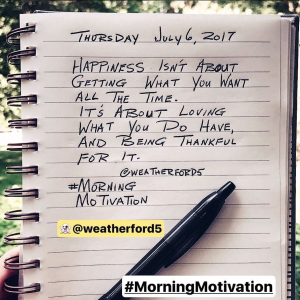 THURSDAY JULY 6, 2017
HAPPINESS ISN'T ABOUT
GETTING WHAT YOU WANT
ALL THE TIME.
IT'S ABOUT LOVING
WHAT YOU DO HAVE,
AND BEING THANKFUL
FOR IT.
@WEATHERFORD5
#MORNING
MOTIVATION
@weatherford5
#MorningMotivation